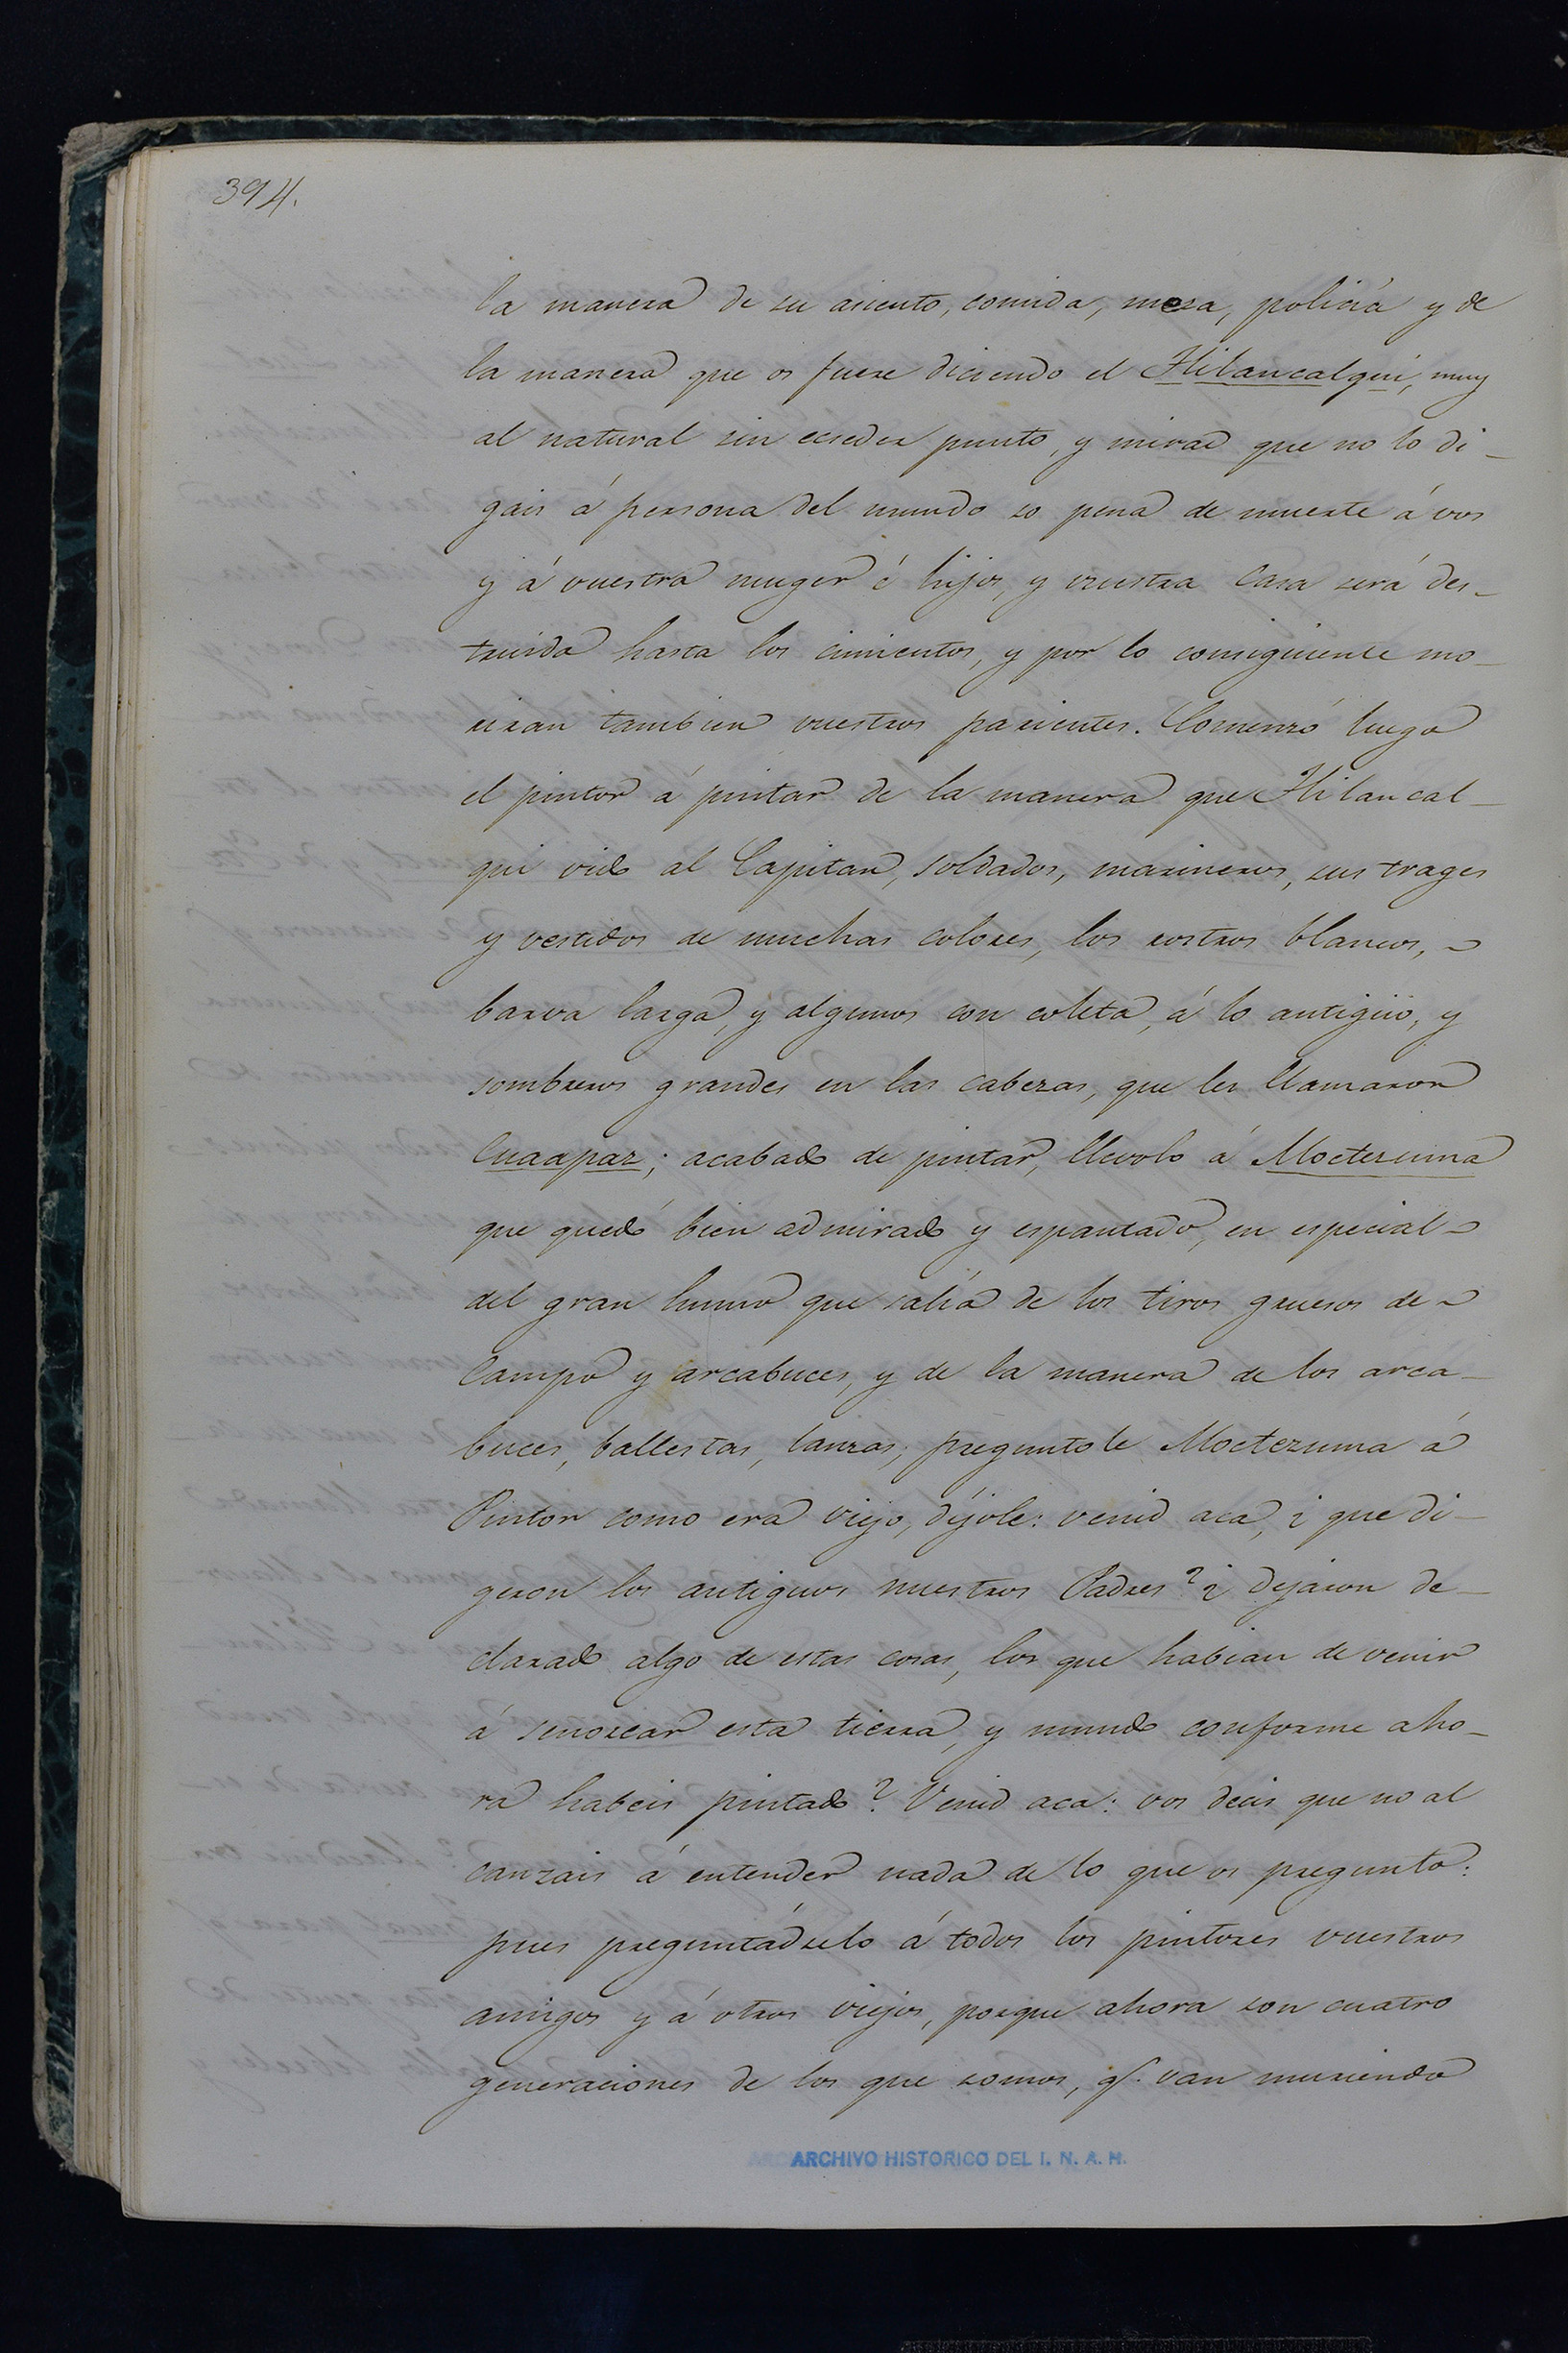 394.
la manera de su asiento, comida, mesa, policía y de
la manera que os fuere diciendo el Tlilancalqui, muy
al natural sin eceder punto, y mirad que no lo di-
gais á persona del mundo so pena de muerte á vos
y á vuestra muger é hijos, y vuestra casa será des-
truida hasta los cimientos, y por lo consiguiente mo-
riran tambien vuestros parientes. Comenzó luego
el pintor á pintar de la manera que Tlilancal-
qui vido al Capitan, soldados, marineros, sus trages
y vestidos de muchas colores, los rostros blancos,
barva larga, y algunos con coleta, á lo antigüo, y
sombreros grandes en las cabezas, que les llamaron
Cuaapaz; acabado de pintar, llevolo á Moctezuma
que quedó bien admirado y espantado, en especial
del gran humo que salía de los tiros gruesos de
Campo y arcabuces, y de la manera de los arca-
buces, ballestas, lanzas; preguntole Moctezuma á
Pintor como era viejo, díjole: venid aca, ¿que di-
geron los antiguos nuestros Padres? ¿dejaron de-
clarado algo de estas cosas, los que habian de venir
á señorear esta tierra, y mundo conforme aho-
ra habeis pintado? Venid aca: vos decis que no al
canzais á entender nada de lo que os pregunto:
pues preguntádselo á todos los pintores vuestros
amigos y á otros viejos, porque ahora son cuatro
generaciones de los que somos, q.e van muriendo
ARCHIVO HISTORICO DEL I. N. A. H.